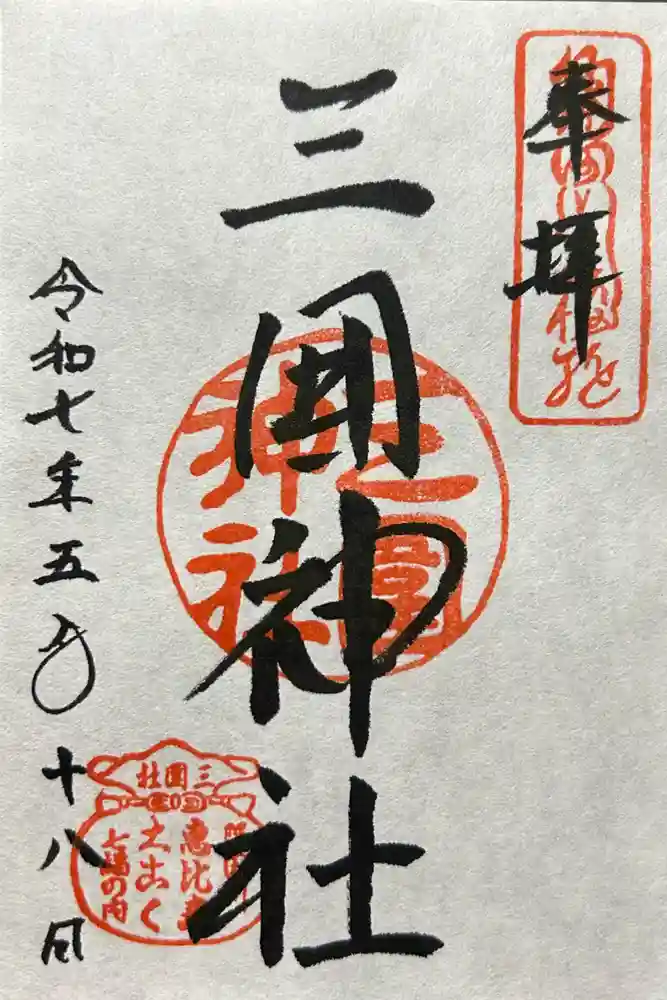 奉拝
三囲神社
令和七年五月十八日
三圍
神社
三囲社
恵比寿
大こく
七福の内